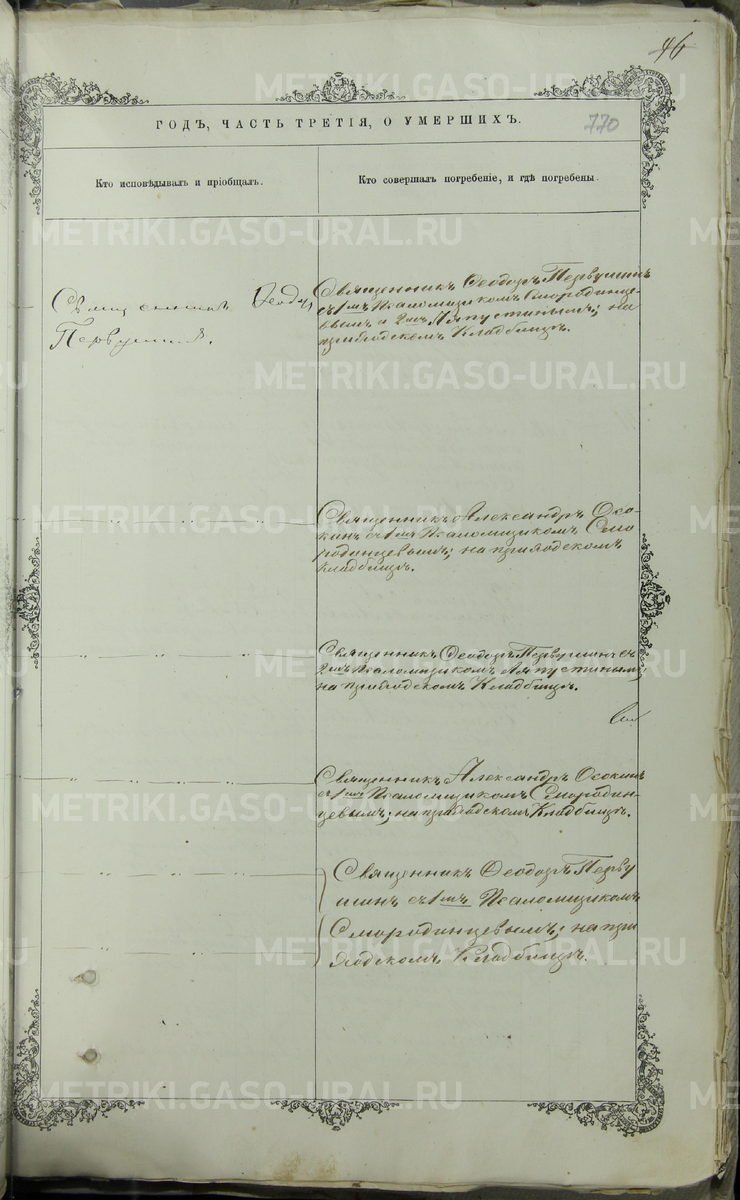 46
ГОДЪ, ЧАСТЬ ТРЕТІЯ, О УМЕРШИХЪ.
770
Кто исповѣдывалъ и пріобщалъ.
Кто совершалъ погребеніе, и гдѣ погребены.
Священникъ Ѳеодоръ
Первушинъ.
Священникъ Ѳеодоръ Первушинъ
съ 1мъ Псаломщикомъ Смородинце-
вымъ и 2мъ Ляпустинымъ; на
приходскомъ Кладбищѣ.
Священникъ Александръ Осо-
кинъ съ 1мъ Псаломщикомъ Смо
родинцевымъ; на приходскомъ
Кладбищѣ.
Священникъ Ѳеодоръ Первушинъ съ
2мъ Псаломщикомъ Ляпустинымъ;
на приходскомъ Кладбищѣ.
Священникъ Александръ Осокинъ
съ 1мъ Псаломщикомъ Смородин-
цевымъ; на приходскомъ Кладбищѣ.
Священникъ Ѳеодоръ Перву
шинъ съ 1мъ Псаломщикомъ
Смородинцевымъ; на при
ходскомъ Кладбищѣ.
METRIKI.GASO-URAL.RU